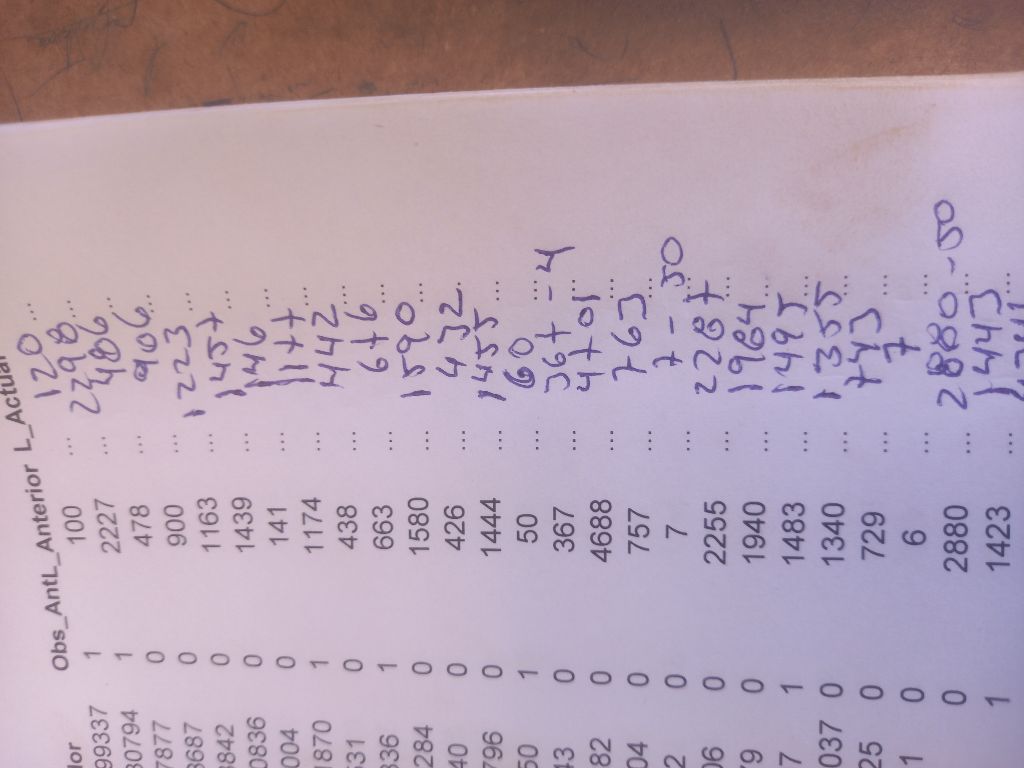 dor Obs_Ant L_Anterior L_Actual
99337 1 100 ... 120 ...
30794 1 2227 ... 2298 ...
7877 0 478 ... 486 ...
8687 0 900 ... 906 ...
8842 0 1163 ... 1223 ...
0836 0 1439 ... 1457 ...
004 0 141 ... 146 ...
1870 1 1174 ... 1177 ...
531 0 438 ... 442 ...
336 1 663 ... 676 ...
284 0 1580 ... 1590 ...
40 0 426 ... 432 ...
796 0 1444 ... 1455 ...
50 1 50 ... 60 ...
43 0 367 ... 367 - 4 ...
82 0 4688 ... 4701 ...
04 0 757 ... 763 ...
2 0 7 ... 7 - 50 ...
06 0 2255 ... ...
79 0 1940 ... 1964 ...
7 1 1483 ... 1495 ...
037 0 1340 ... 1355 ...
25 0 729 ... 743 ...
1 0 6 ... 7 ...
0 2880 ... 2880 - 50 ...
1 1423 ... 1443 ...